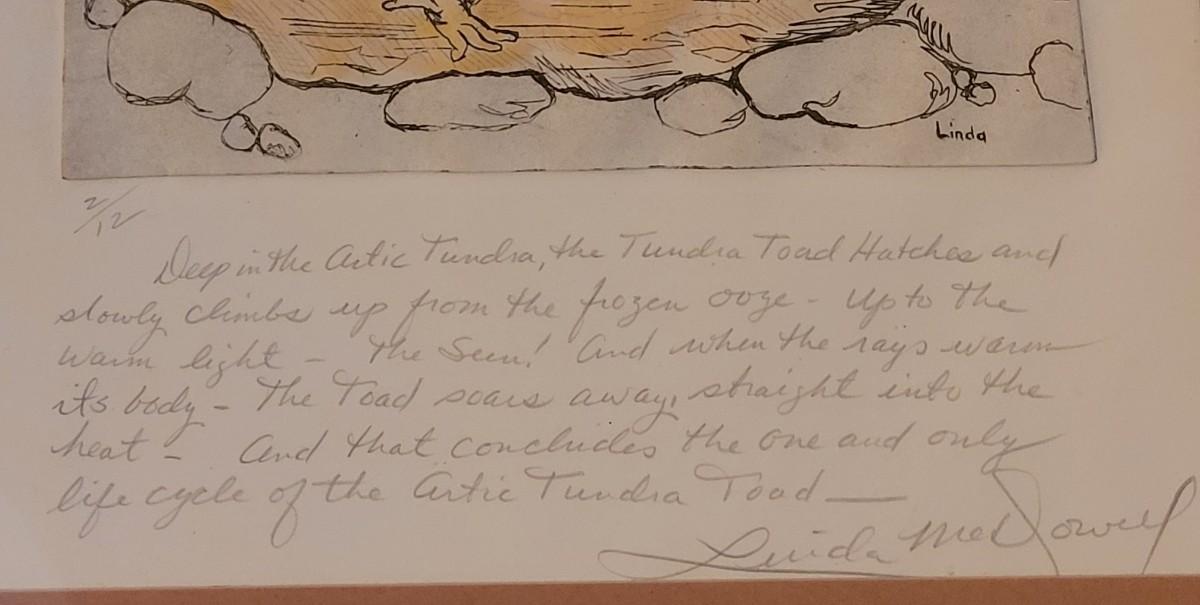 Linda
2/12
Deep in the Artic Tundra, the Tundra Toad Hatches and
slowly climbs up from the frozen ooze - Up to the
warm light - The Sun! And when the rays warm
its body - The Toad soars away, straight into the
heat - And that concludes the one and only
life cycle of the Artic Tundra Toad —
Linda McDowell